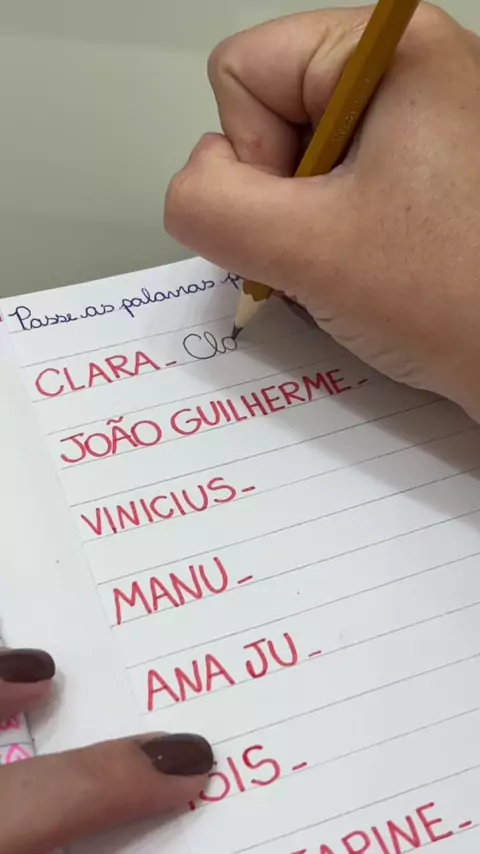 Passe as palavras
CLARA - Cla
JOÃO GUILHERME -
VINICIUS -
MANU -
ANA JU -